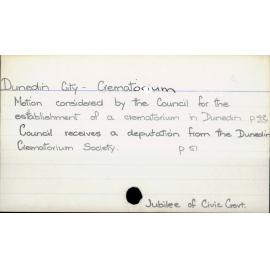 Dunedin City - Crematorium
Motion considered by the Council for the
establishment of a crematorium in Dunedin p 98
Council receives a deputation from the Dunedin
Crematorium Society. p 51
Jubilee of Civic Govt.